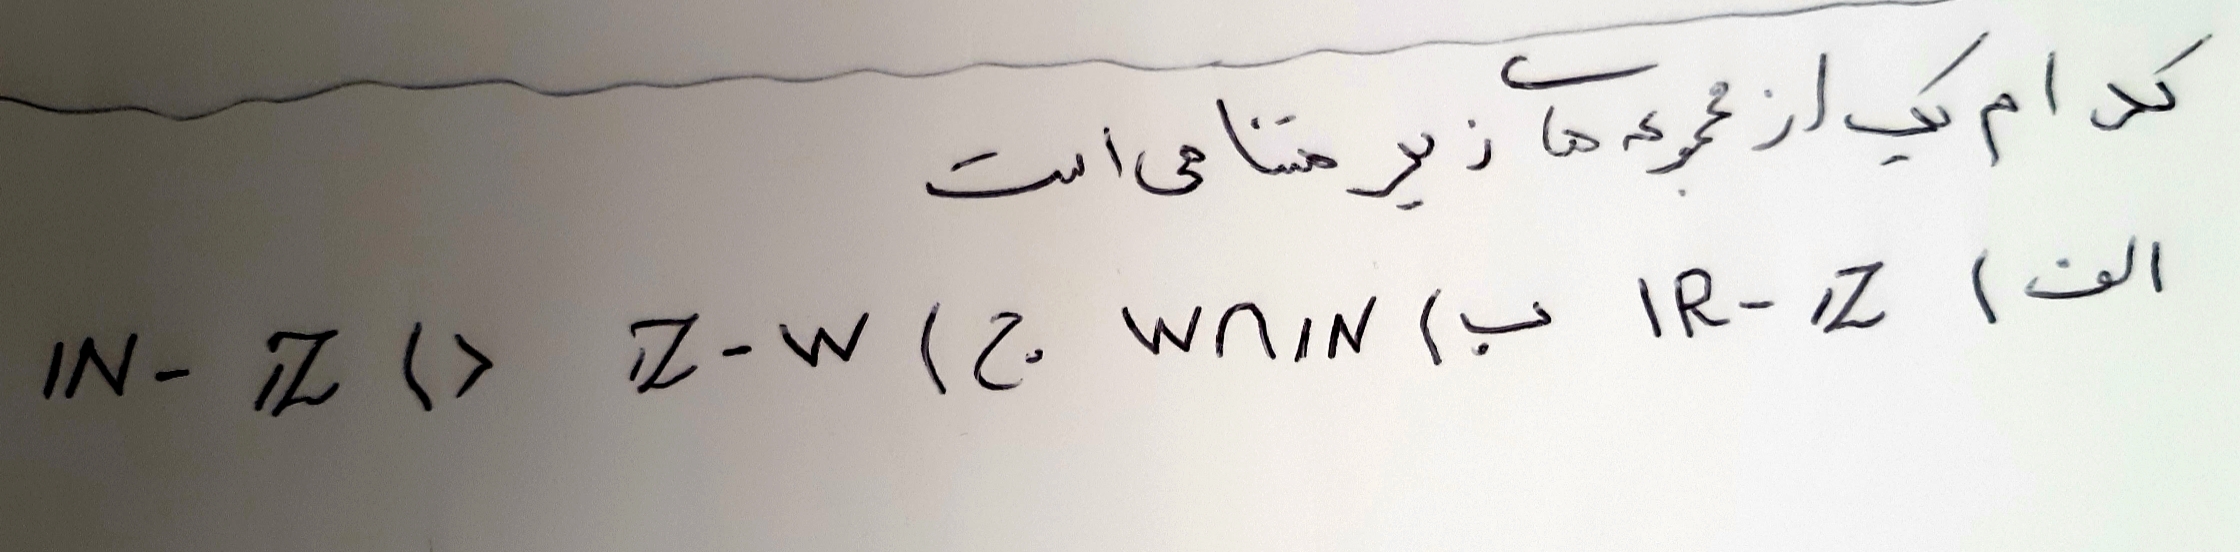 کدام یک از مجموعه های زیر متناهی است
الف) IR - Z ب) W∩IN ج) Z - W د) IN - Z